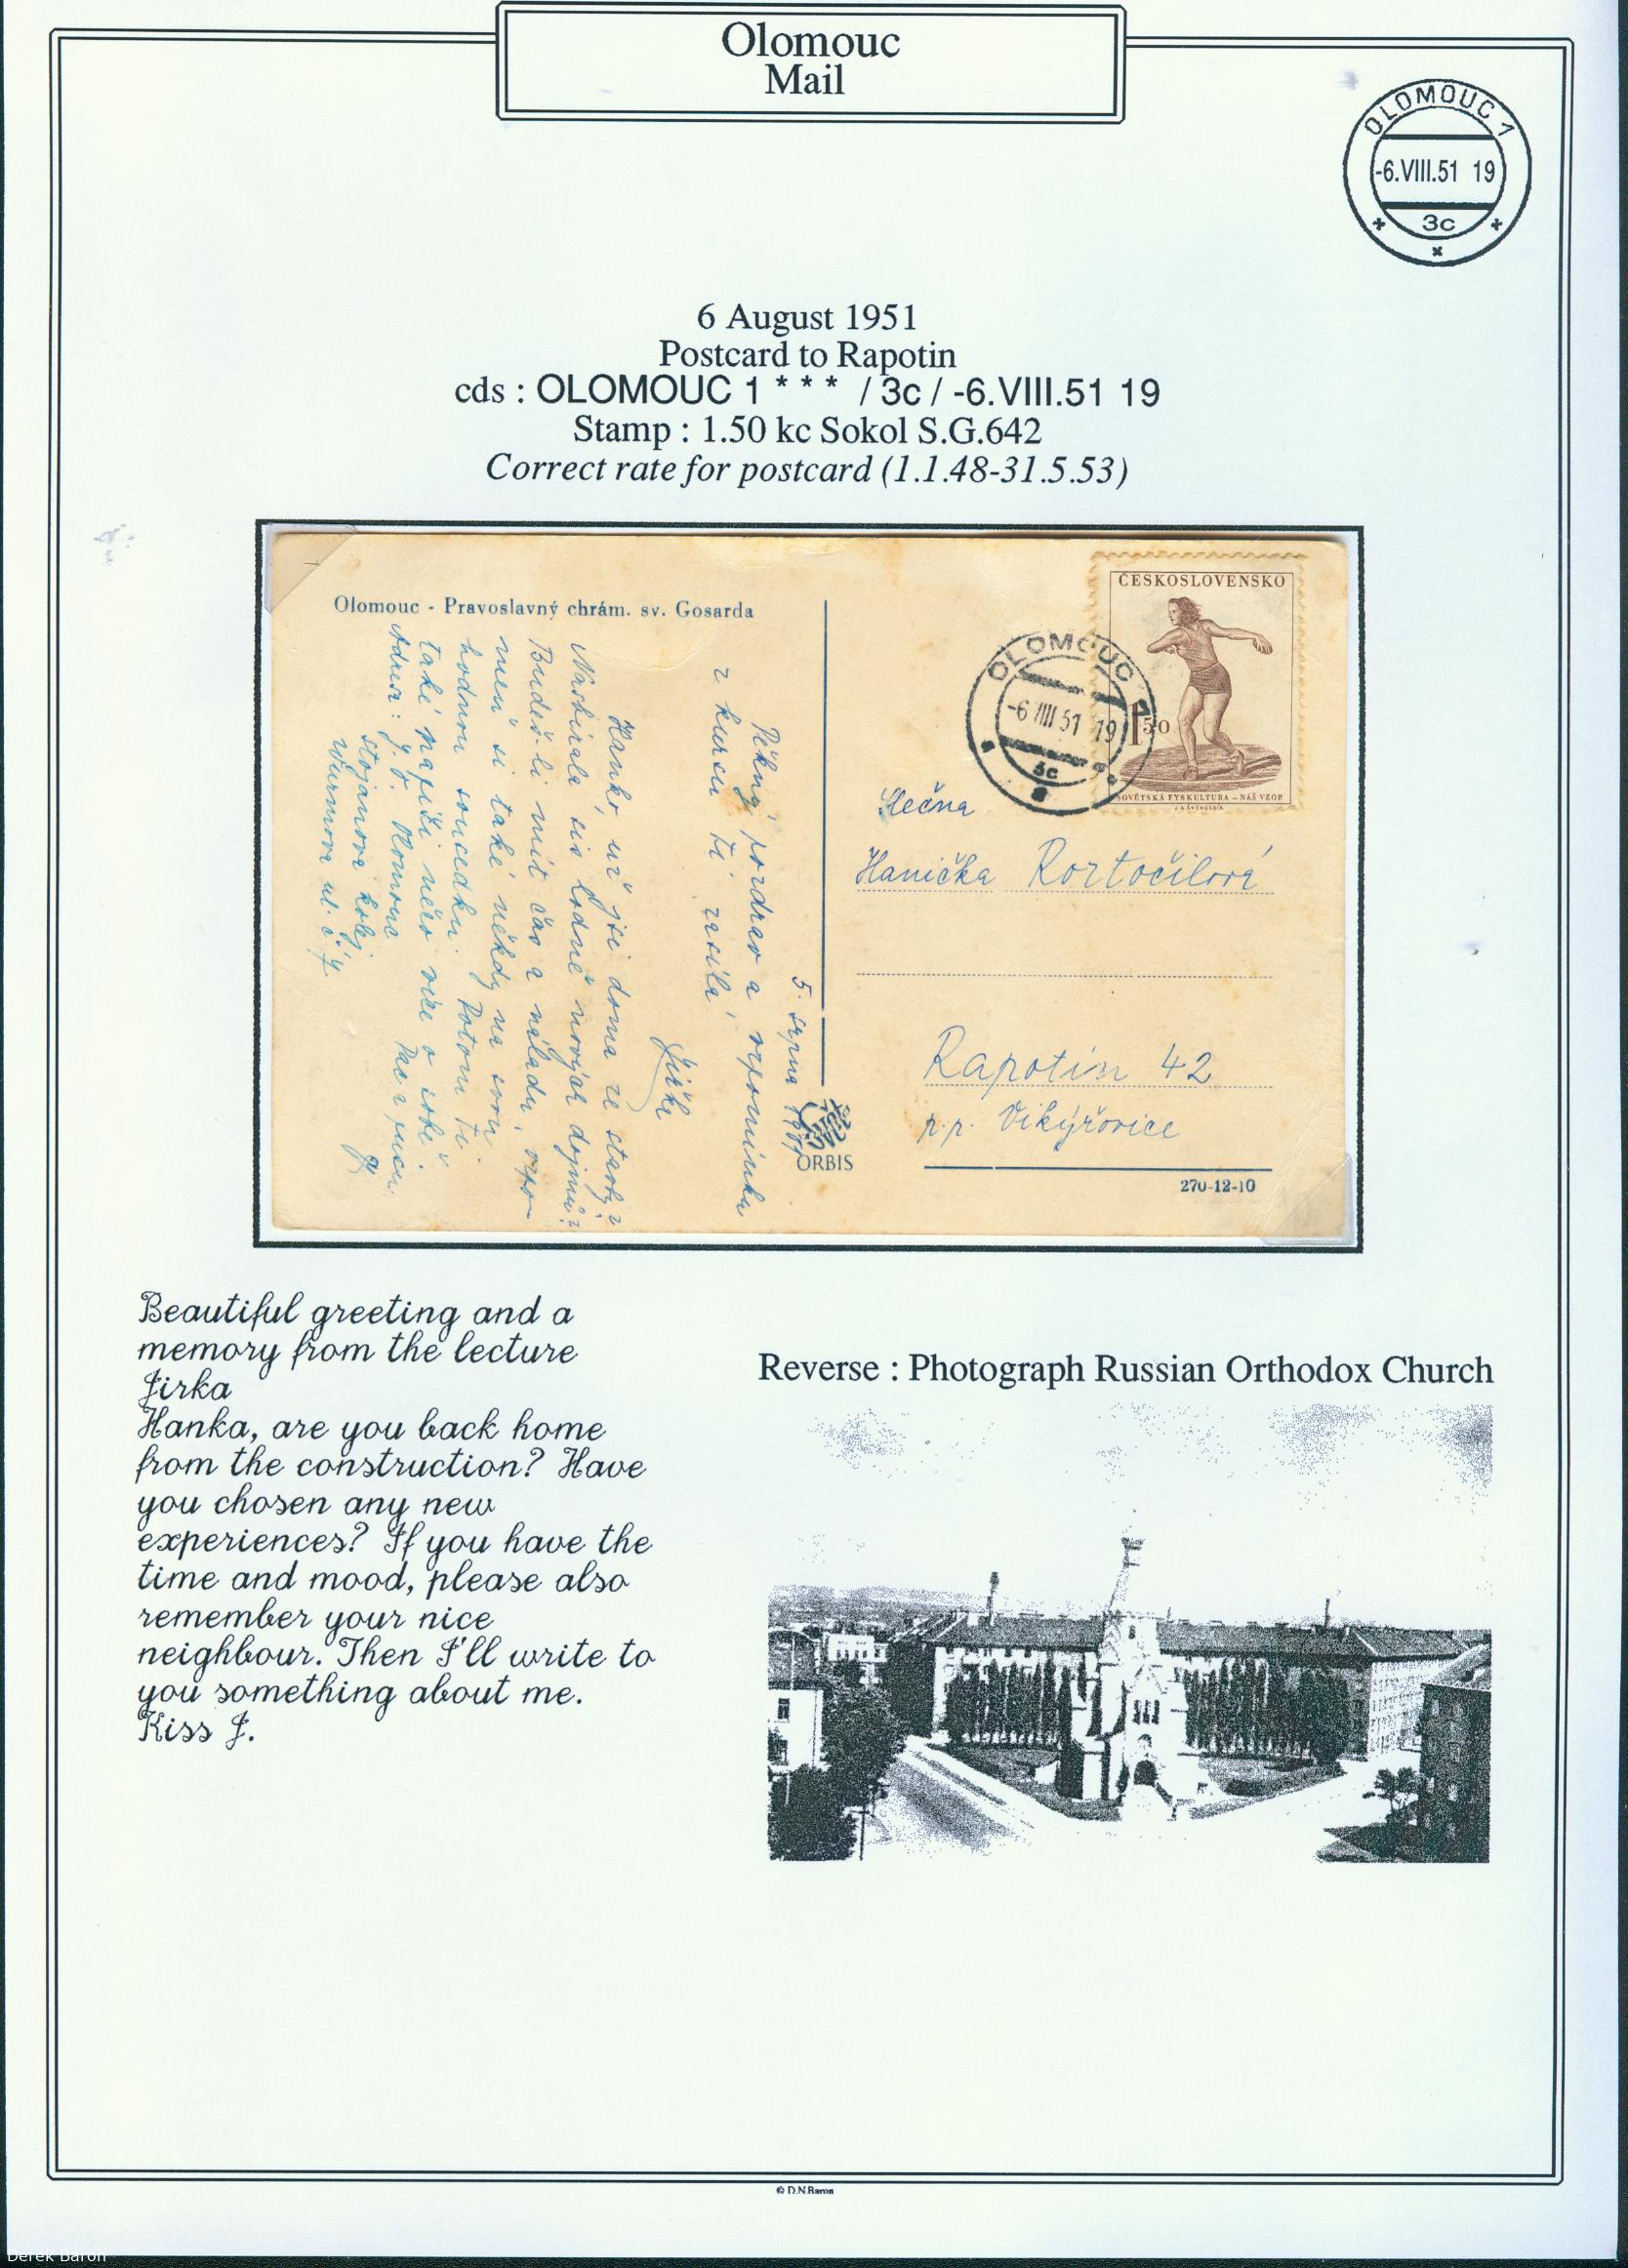 Olomouc
Mail
OLOMOUC 1
-6.VIII.51 19
3c
6 August 1951
Postcard to Rapotin
cds : OLOMOUC 1 * * * / 3c / -6.VIII.51 19
Stamp : 1.50 kc Sokol S.G.642
Correct rate for postcard (1.1.48-31.5.53)
Olomouc - Pravoslavný chrám. sv. Gosarda
ČESKOSLOVENSKO
1 50
SOVĚTSKÁ FYSKULTURA – NÁŠ VZOR
OLOMOUC 1
-6 VIII 51 19
3c
5. srpna 1951
Pěkný pozdrav a vzpomínku
z kursu Ti zasílá,
Jirka
Hanko, už jsi doma ze stavby?
Nasbírala sis hodně nových dojmů?
Budeš-li mít čas a náladu, vzpo-
meň si také někdy na svou
hodnou sousedku. Potom Ti
také napíši něco více o sobě.
Adresa: J. Olomouc
Stojanova kolej
Wurmova ul. č. 7.
J.
Slečna
Hanička
Rapotín 42
p.p. Vikýřovice
ORBIS
270-12-10
Beautiful greeting and a
memory from the lecture
Jirka
Hanka, are you back home
from the construction? Have
you chosen any new
experiences? If you have the
time and mood, please also
remember your nice
neighbour. Then I'll write to
you something about me.
Kiss J.
Reverse : Photograph Russian Orthodox Church
© D.N.Baron
Derek Baron